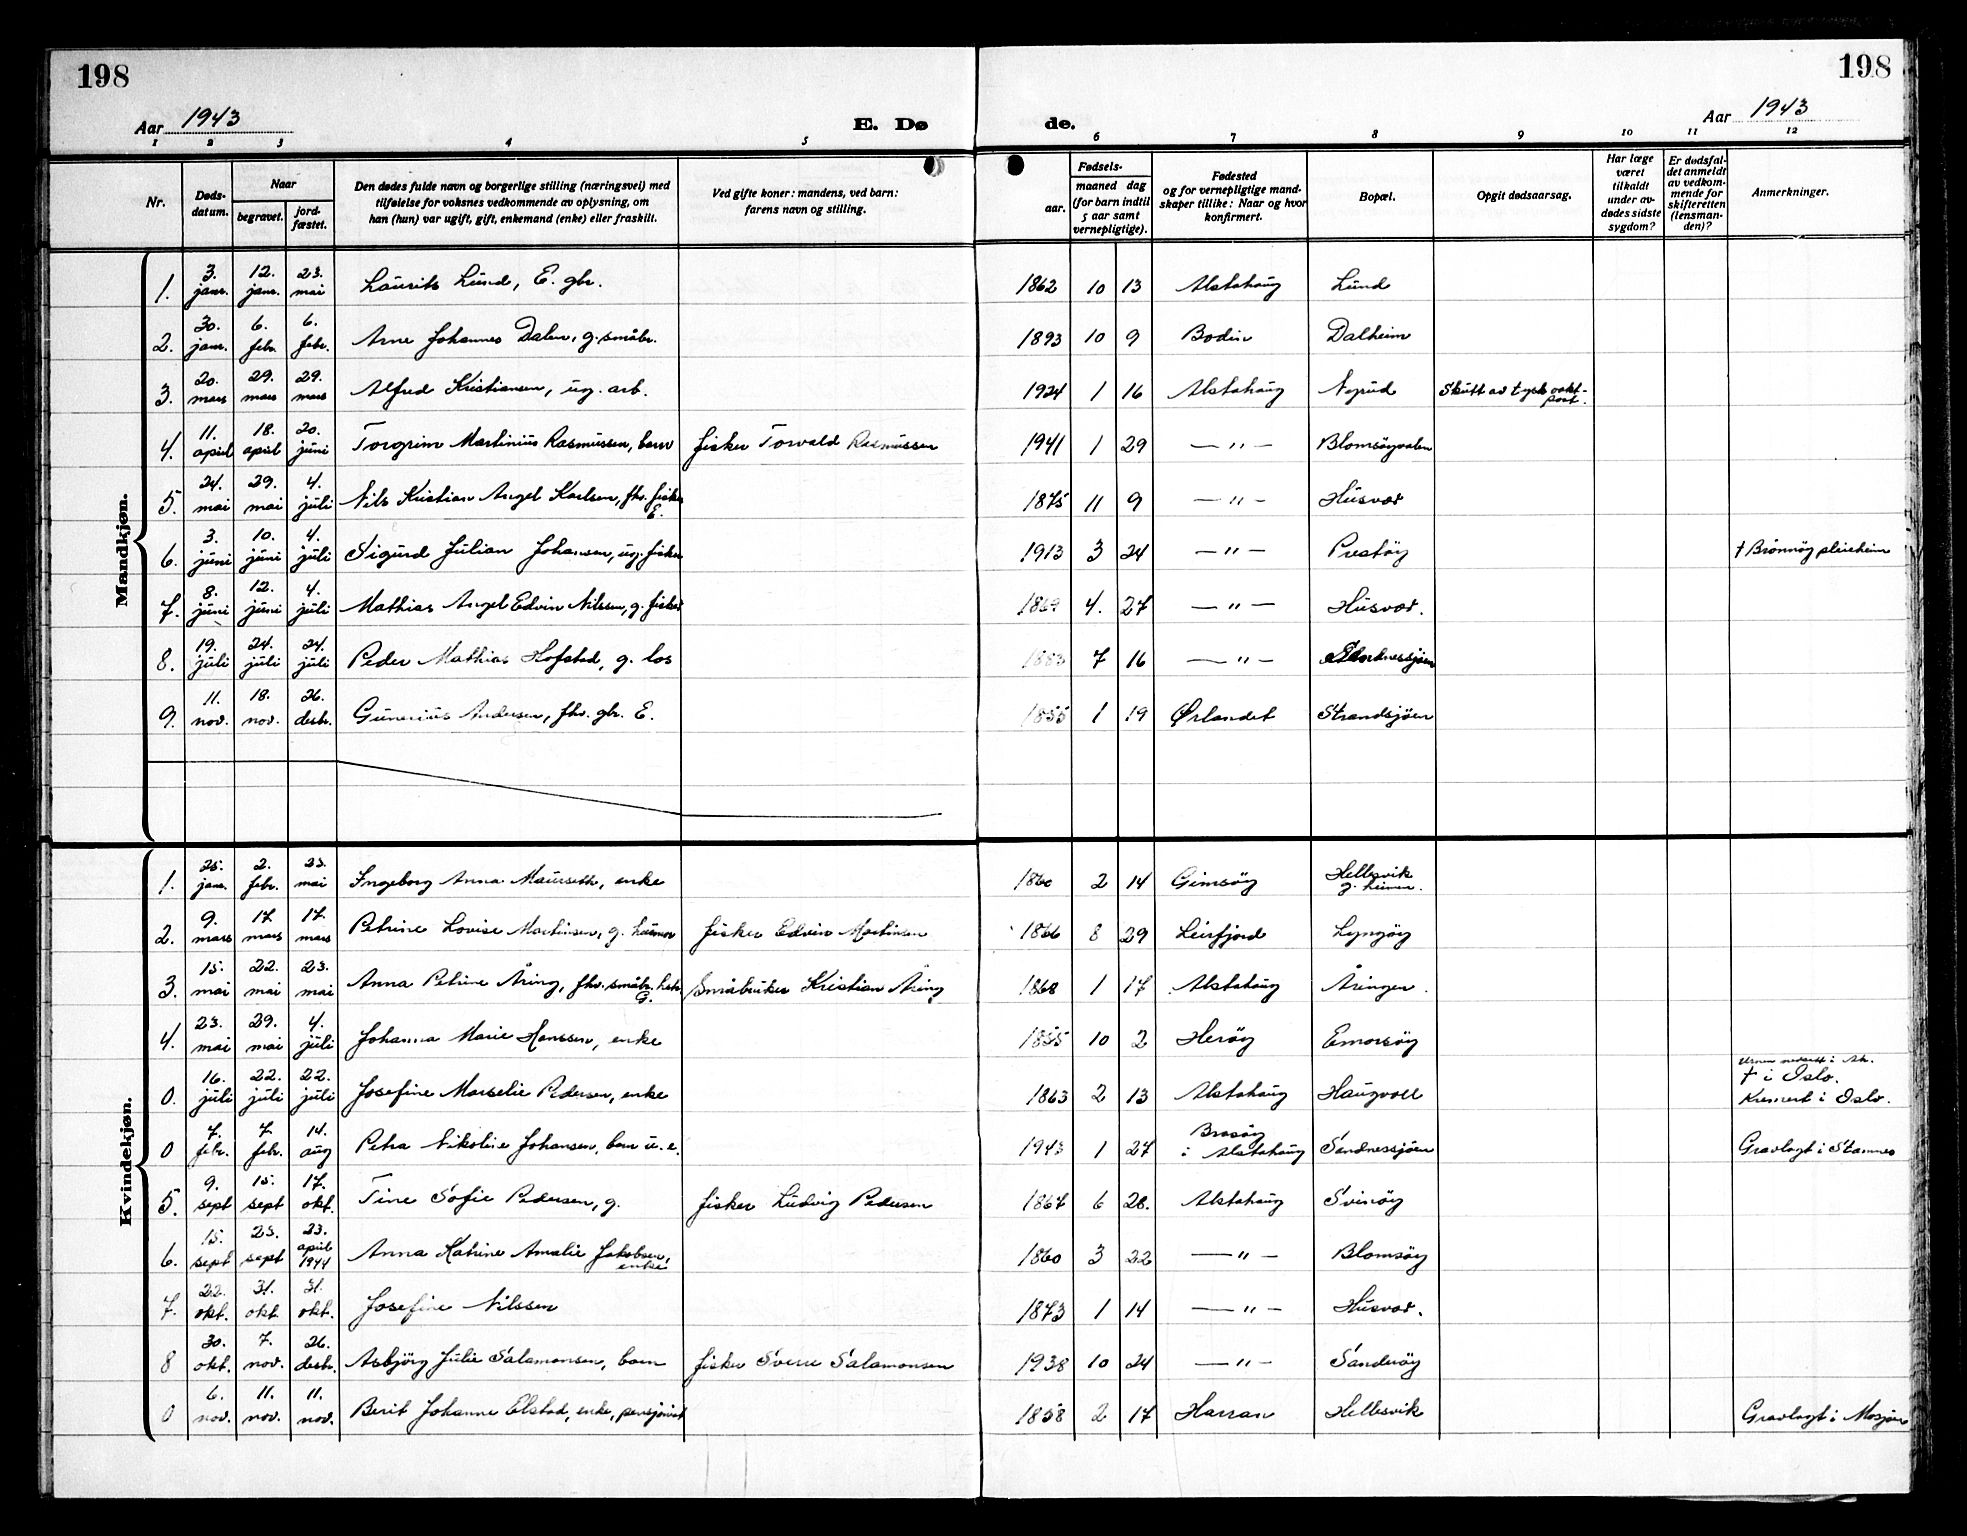 198
198
Aar 1943
E. Dø
de.
Aar 1943
1 2 3 4 5 6 7 8 9 10 11 12
Nr.
Døds-
datum.
Naar
begravet.
jord-
fæstet.
Den dødes fulde navn og borgerlige stilling (næringsvei) med
tilføielse for voksnes vedkommende av oplysning, om
han (hun) var ugift, gift, enkemand (enke) eller fraskilt.
Ved gifte koner: mandens, ved barn:
farens navn og stilling.
Fødsels-
aar.
maaned dag
(for barn indtil
5 aar samt
vernepligtige).
Fødested
og for vernepligtige mand-
skaper tillike: Naar og hvor
konfirmert.
Bopæl.
Opgit dødsaarsag.
Har læge
været
tilkaldt
under av-
dødes sidste
sygdom?
Er dødsfal-
det anmeldt
av vedkom-
mende for
skifteretten
(lensman-
den)?
Anmerkninger.
Mandkjøn.
1. 3. janr. 12. janr. 23. mai Laurits Lund, E. gbr. 1862 10 13 Alstahaug Lund
2. 30. janr. 6. febr. 6. febr. Arne Johannes Dalen, g. småbr. 1893 10 9 Bodin Dalheim
3. 20. mars 29. mars 29. mars Alfred Kristiansen, ug. arb. 1924 1 16 Alstahaug Skutt av tysk vakt-
post.
4. 11. april 18. april 20. juni Torgrim Martinius Rasmussen, barn fisker Torvald Rasmussen 1941 1 29 — " — Blomsøyvalen
5. 24. mai 29. mai 4. juli Nils Kristian Angel Karlsen, fhv. fisker
E. 1875 11 9 — " — Husvær
6. 3. juni 10. juni 4. juli Sigurd Julian Johansen, ug. fisker 1913 3 24 — " — Prestøy † Brønnøy pleieheim
7. 8. juni 12. juni 4. juli Mathias Angel Edvin Nilssen, g. fisker 1869 4. 27 — " — Husvær.
8. 19. juli 24. juli 24. juli Peder Mathias Hofstad, g. los 1883 7 16 — " — Sandnessjøen
9. 11. nov. 18. nov. 26. desbr. Gunerius Andersen, fhv. gbr. E. 1855 1 19 Ørlandet Strandsjøen
Kvindekjøn.
1. 25. janr. 2. febr. 23. mai Ingeborg Anna Maurseth, enke 1860 2 14 Gimsøy Hellesvik
g. heimen.
2. 9. mars 17 mars 17. mars Petrine Lovise Martinsen, g. husmor fisker Edvin Martinsen 1866 8 29 Leirfjord Lyngøy
3. 15. mai 22. mai 23. mai Anna Petrine Åring, fhv. småbr.
G. Småbruker Kristian Åring 1868 1 17 Alstahaug Åringen.
4. 23. mai 29. mai 4. juli Johanna Marie Hanssen, enke 1855 10 2 Herøy
0. 16. juli 22. juli 22. juli Josefine Marselie Pedersen, enke 1863 2 13 Alstahaug Haugvoll Urnen nedsatt i
† i Oslo.
Kremert i Oslo.
0 7. febr. 7. febr. 14. aug Petra Nikoline Johansen, barn u. e. 1943 1 27 Brasøy
i Alstahaug Sandnessjøen Gravlagt i Stamnes
5. 9. sept 15. sept 17. okt. Tine Sofie Pedersen, g. fisker Ludvig Pedersen 1867 6 28. Alstahaug Svinøy
6. 15. sept 23. sept 23. april 1944 Anna Katrine Amalie Jakobsen,
enke 1860 3 22 — " — Blomsøy
7. 22. okt. 31. okt. 31. okt. Josefine Nilssen 1873 1 14 — " — Husvær.
8 30. okt. 7. nov. 26. desbr. Asbjørg Julie Salamonsen, barn fisker Sverre Salamonsen 1938 10 24 — " — Sandøy
0 6. nov. 11. nov. 11. nov. Berit Johanne Elstad, enke, pensjonist 1858 2 17 Harran Hellesvik Gravlagt i Mosjøen